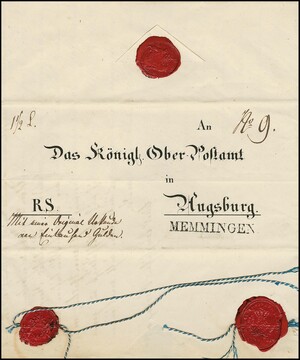 1½ L.
An
No 9.
Das Königl. Ober-Postamt
in
RS.
Augsburg.
Mit einer Original Urkunde
von Eintausend Gulden.
MEMMINGEN